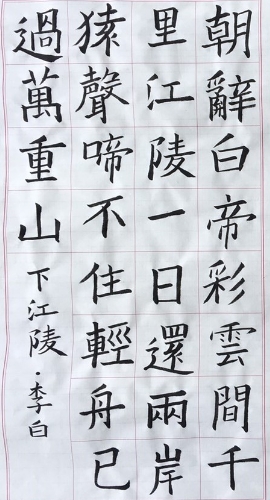 朝辭白帝彩雲間千
里江陵一日還兩岸
猿聲啼不住輕舟已
過萬重山
下江陵·李白